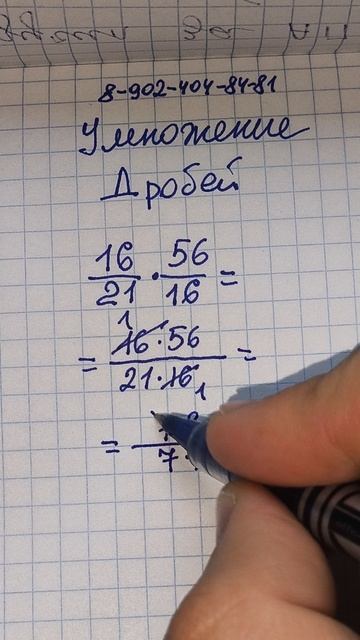 8-902-404-84-81
Умножение
Дробей
16/21 · 56/16 =
= 16·56/21·16 =
1
1
= 7